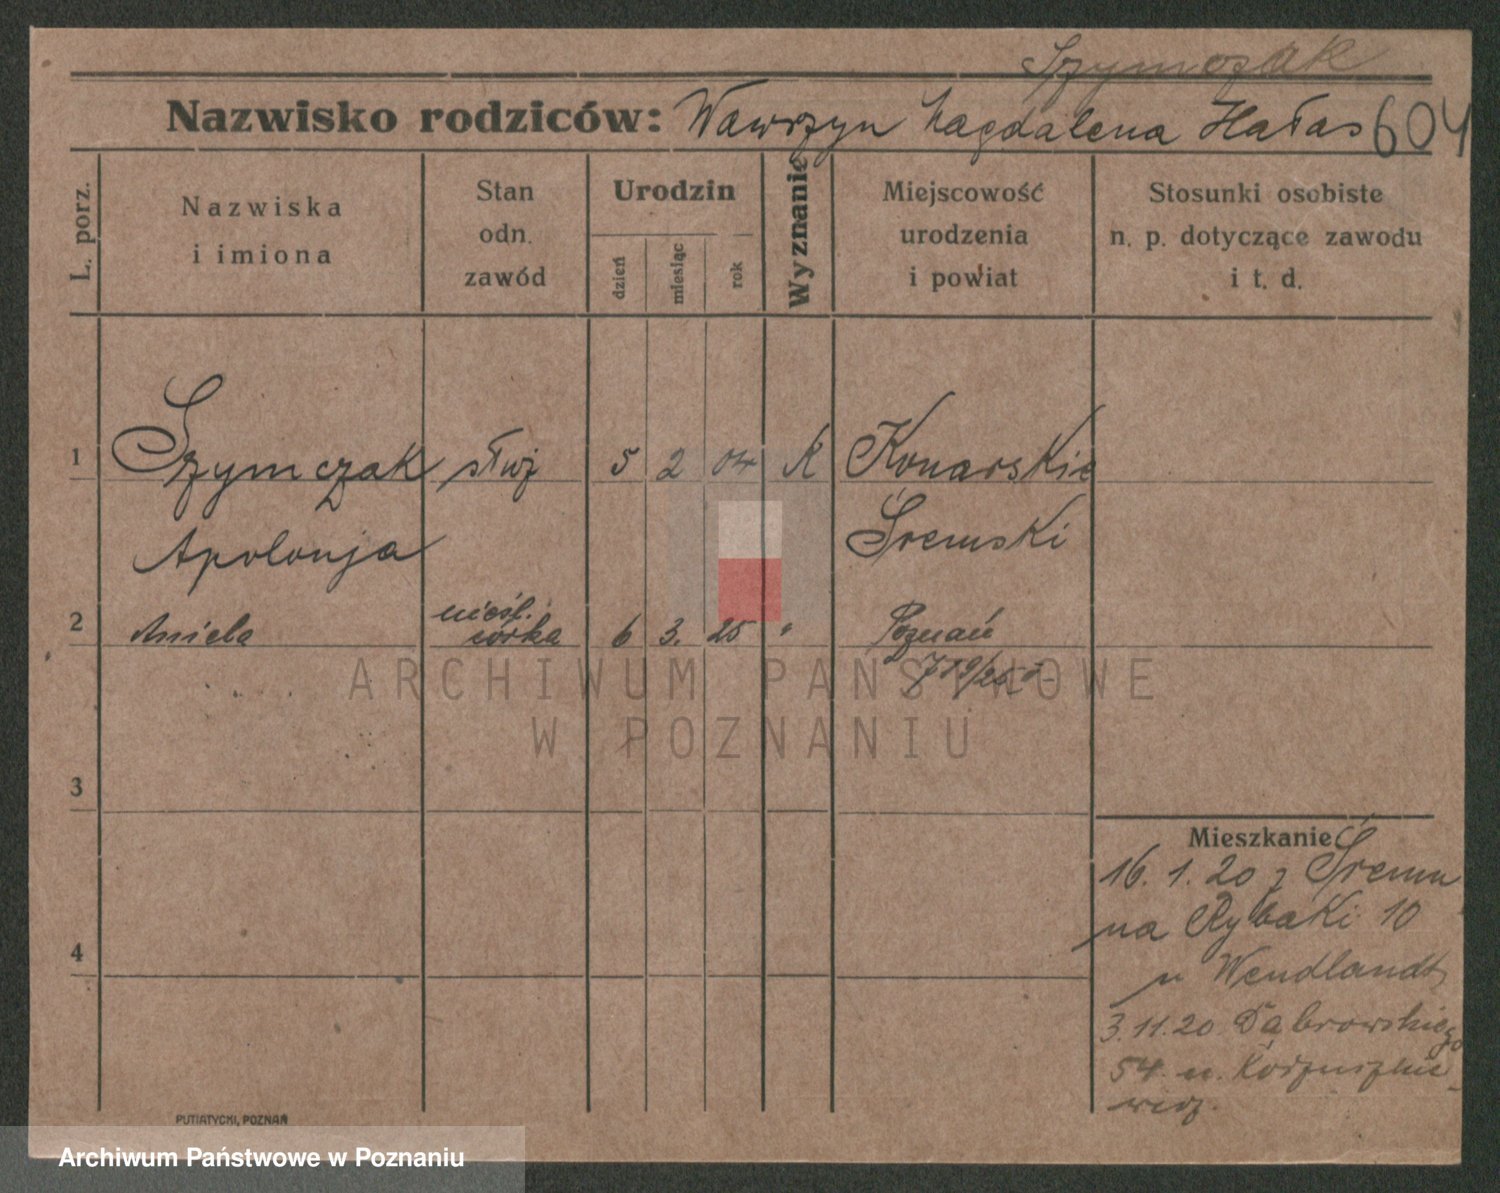 Szymczak
Nazwisko rodziców: Wawrzyn Magdalena Hałas 604
L. porz.
Nazwiska
i imiona
Stan
odn.
zawód
Urodzin
dzień
miesiąc
rok
Wyznanie
Miejscowość
urodzenia
i powiat
Stosunki osobiste
n. p. dotyczące zawodu
i t. d.
1 Szymczak służ 5 2 04 K Konarskie
Apolonja Śremski
2 Aniela nieśl. córka 6 3. 25 " Poznań
719/25
3
4
Mieszkanie
16. 1. 20 z Śremu
na Rybaki 10
u Wendlandt
3.11.20 Dąbrowskiego
54 u.
PUTIATYCKI, POZNAŃ
ARCHIWUM PAŃSTWOWE
W POZNANIU
Archiwum Państwowe w Poznaniu